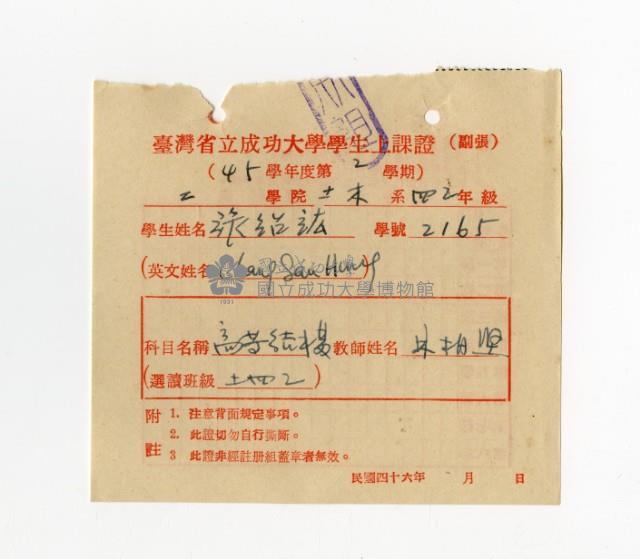 臺灣省立成功大學學生上課證 (副張)
(45學年度第2學期)
工學院 土木 系四乙年級
學生姓名 張紹 學號 2165
(英文姓名 )
1931
國立成功大學博物館
科目名稱 高等結構 教師姓名
(選讀班級 土四乙)
附註
1. 注意背面規定事項。
2. 此證切勿自行撕斷。
3 此證非經註册組蓋章者無效。
民國四十六年 月 日